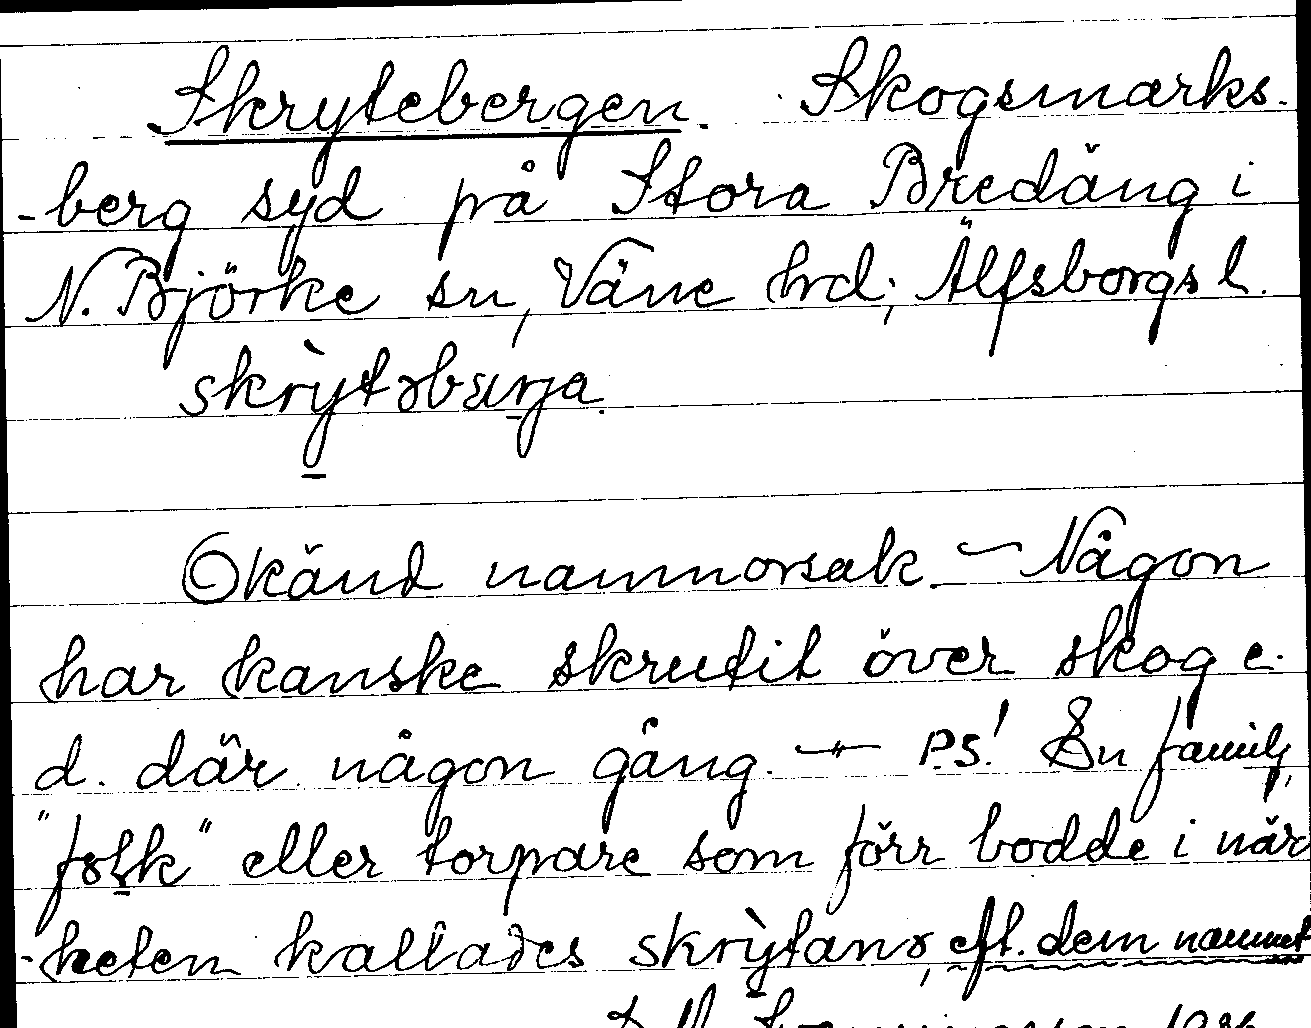 Skrytebergen. Skogsmarks-
-berg syd på Stora Bredäng i
N. Björke sn, Väne hrd; Älfsborgs l.
skrỳtəbærja.
Okänd namnorsak. — Någon
har kanske skrutit över skog e.
d. där någon gång. — PS! En familj,
"folk" eller torpare som förr bodde i när
-heten kallades skrỳtanə, eft. dem namnet